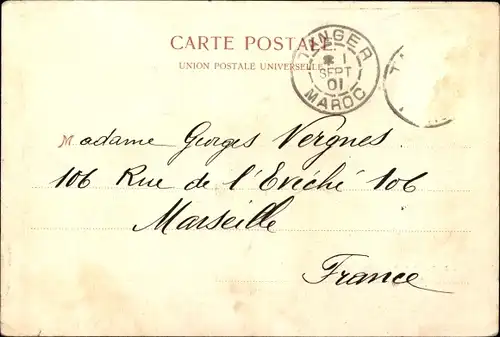 CARTE POSTALE
UNION POSTALE UNIVERSELLE
TANGER
1
SEPT
01
MAROC
Madame Georges Vergnes.
106 Rue de l'Evéché 106
Marseille
France